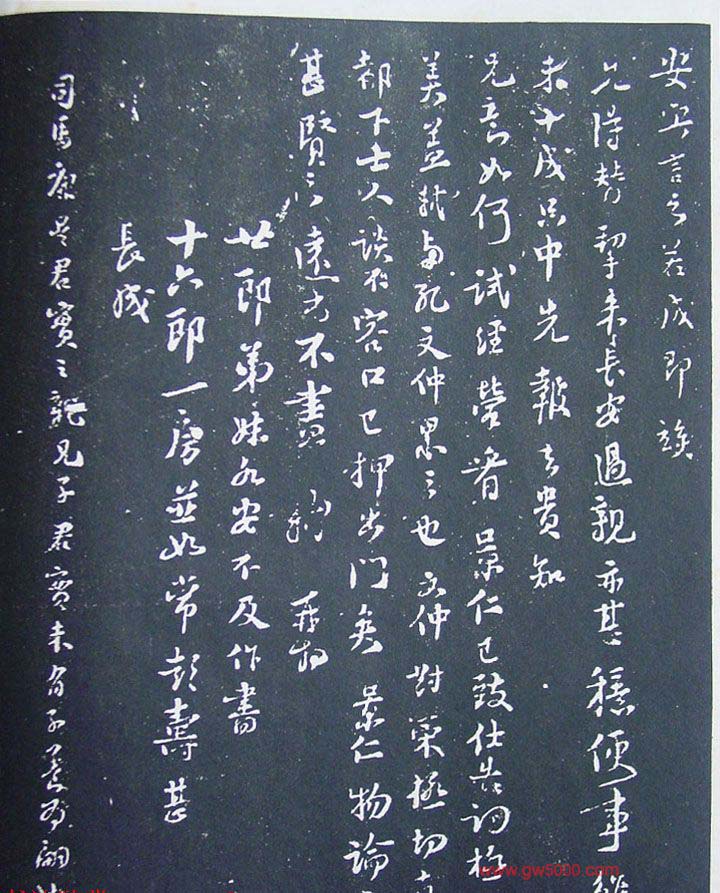 安與言之若成即挨
兄得替挈來長安過親亦甚穩便事
未十成只中先報去貴知
兄意如何試經營看景仁已致仕告詞極
美蓋軾與孔文仲累之也文仲對策極切
都下士人談不容口已押出門矣景仁物論
甚賢之遠書不盡 軾 再拜
廿郎弟妹各安不及作書
十六郎一房並如常彭壽甚
長成
司馬康是君實之親兄子君實未有子養為嗣
www.gw5000.com